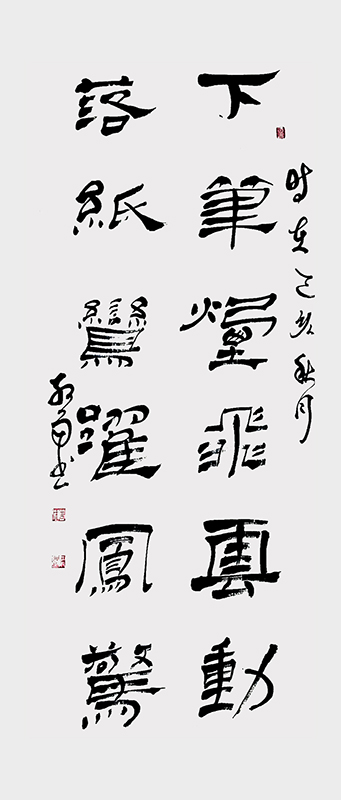 时在己亥秋月
下筆煙飛雲動
落紙鸞躍鳳驚
书